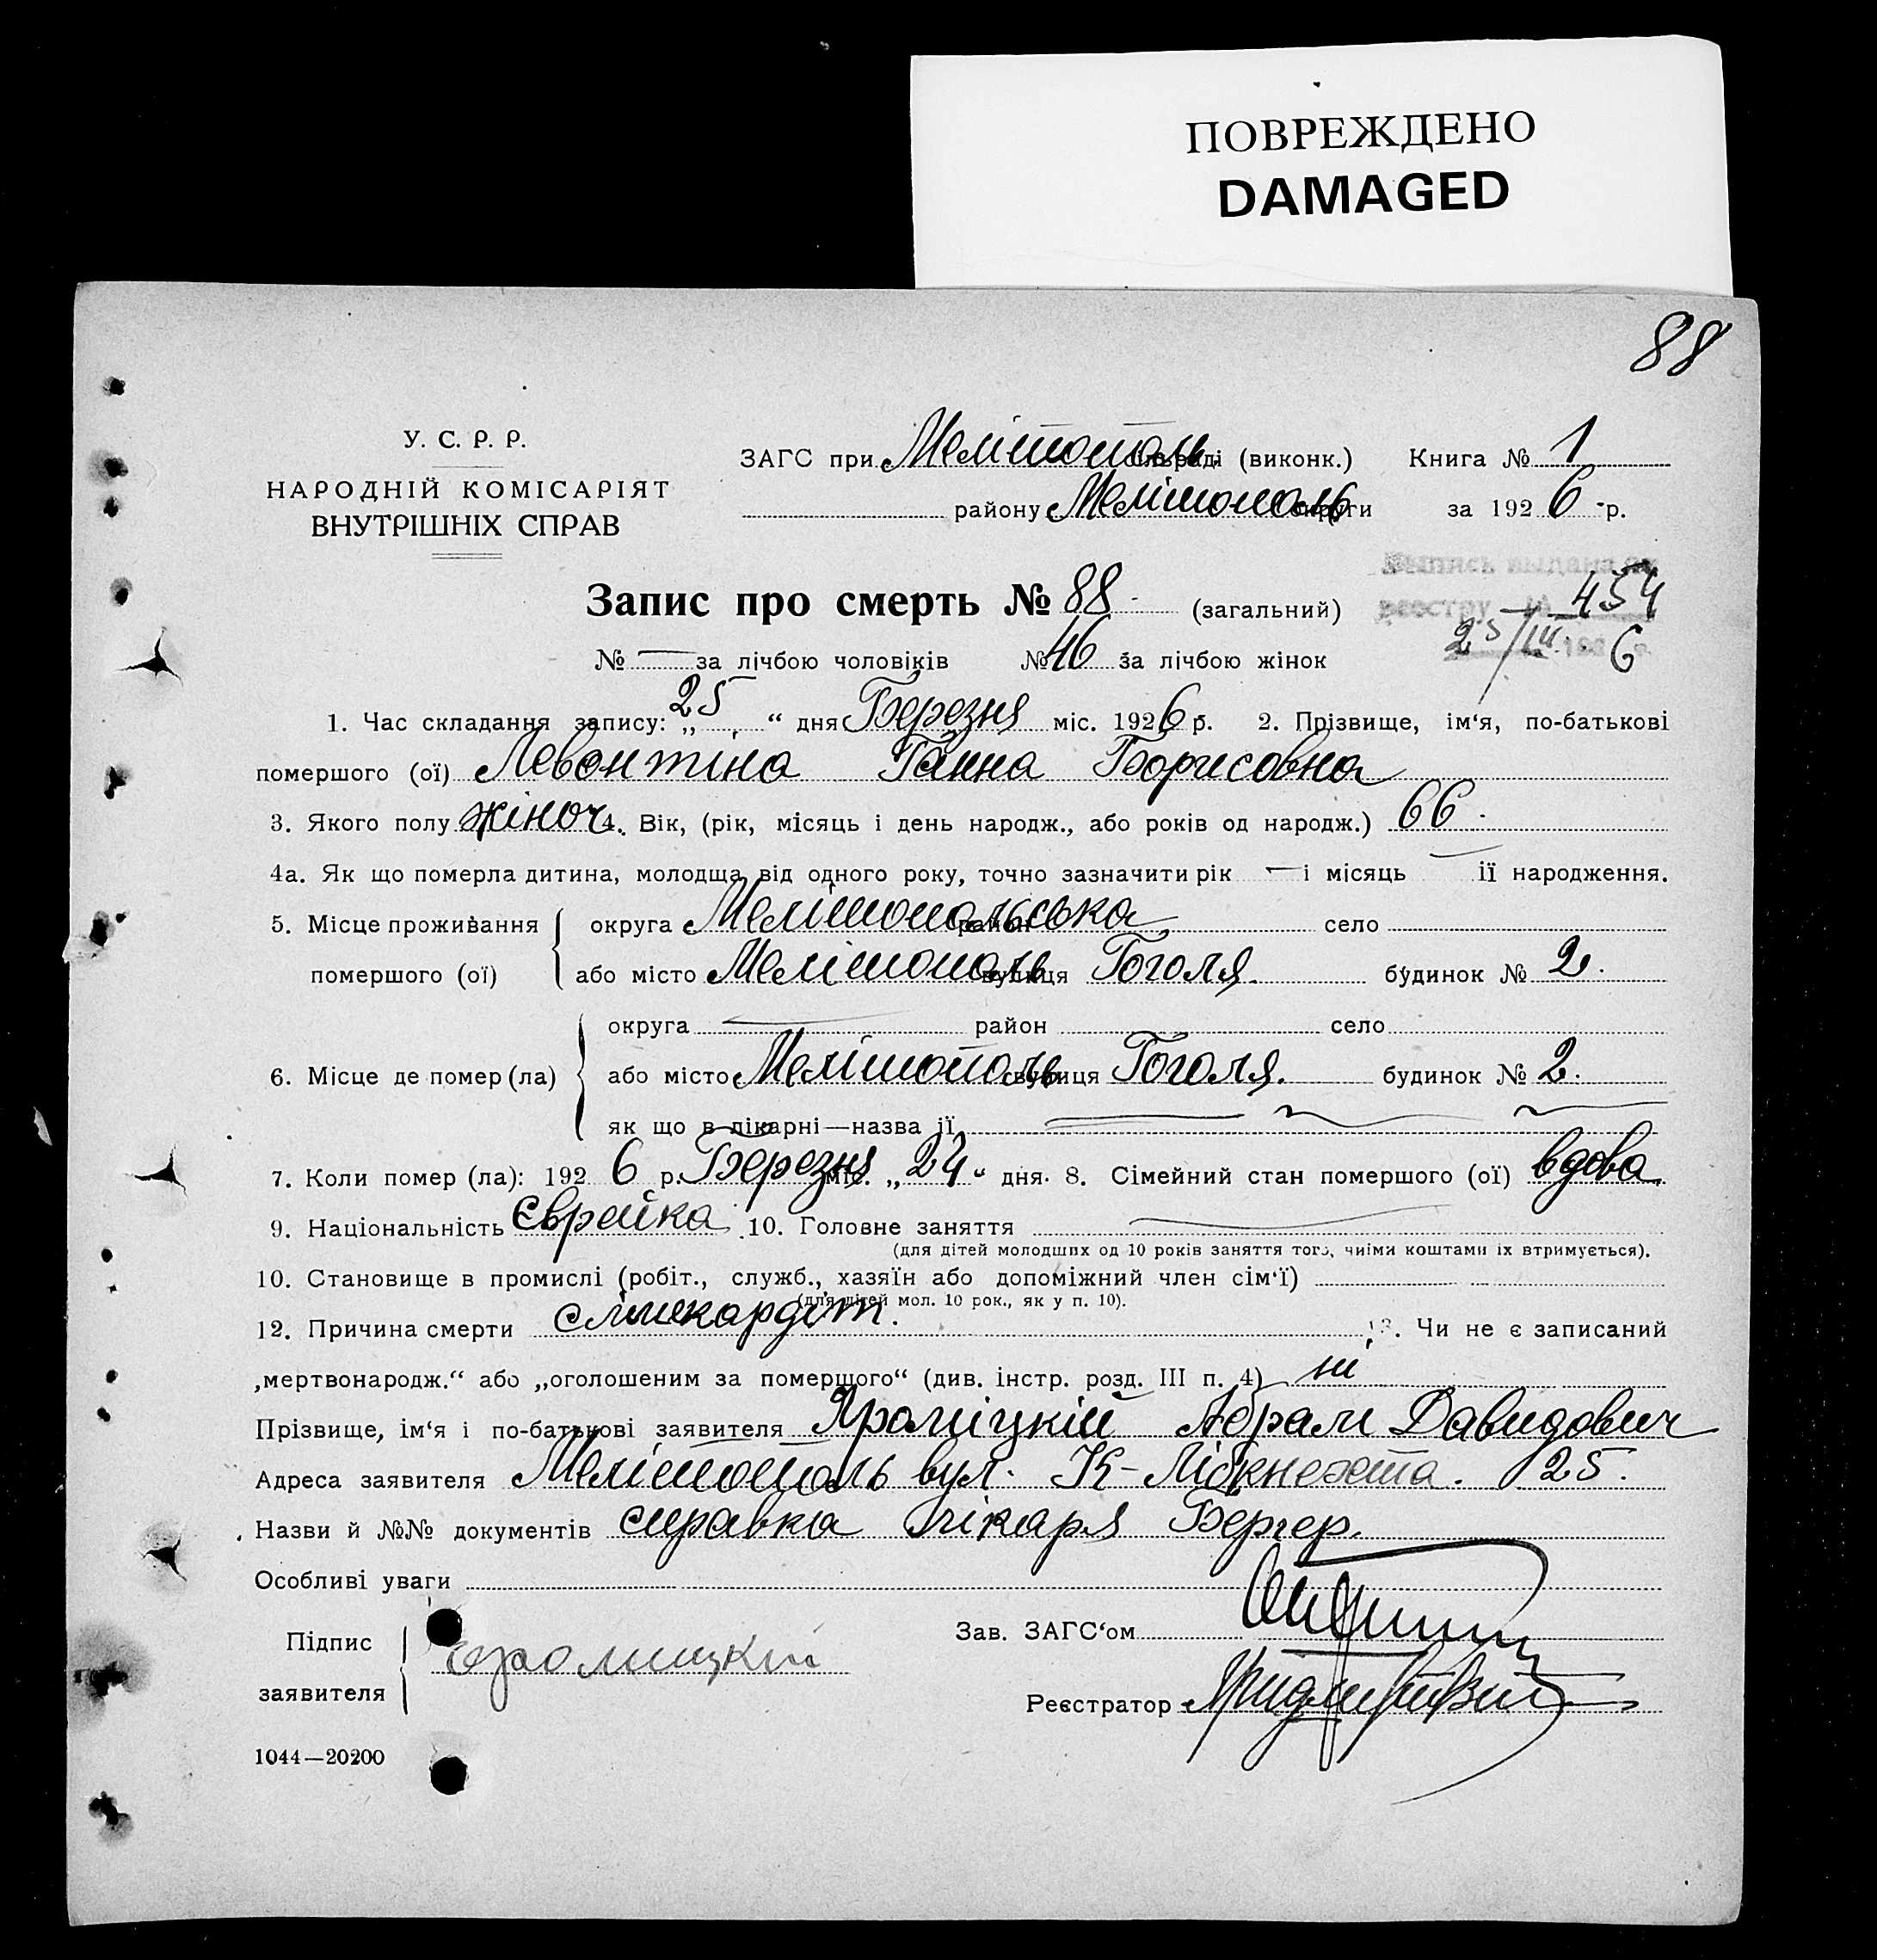 ПОВРЕЖДЕНО
DAMAGED
88
У. С. Р. Р.
НАРОДНІЙ КОМІСАРІЯТ
ВНУТРІШНІХ СПРАВ
ЗАГС при Мелітополь сільраді (виконк.) Книга № 1
району Мелітополь округи за 1926 р.
Выпись выдана
реестру № 454
25/III 1926 р.
Запис про смерть № 88 (загальний)
№ — за лічбою чоловіків № 46 за лічбою жінок
1. Час складання запису: „25“ дня Березня міс. 1926 р. 2. Прізвище, ім‘я, по-батькові
помершого (ої) Левонтіна Ганна Борисовна
3. Якого полу жіноч 4. Вік, (рік, місяць і день народж., або років од народж.) 66.
4а. Як що померла дитина, молодща від одного року, точно зазначити рік — і місяць — ії народження.
5. Місце проживання помершого (ої) округа Мелітопольська район село
або місто Мелітополь вулиця Гоголя. будинок № 2.
6. Місце де помер (ла) округа — район село
або місто Мелітополь вулиця Гоголя. будинок № 2.
як що в лікарні—назва її
7. Коли помер (ла): 1926 р. Березня міс. „24“ дня. 8. Сімейний стан помершого (ої) вдова
9. Національність Єврейка 10. Головне заняття —
(для дітей молодших од 10 років заняття того, чиїми коштами їх втримується).
10. Становище в промислі (робіт., служб., хазяїн або допоміжний член сім‘ї)
(для дітей мол. 10 рок., як у п. 10).
12. Причина смерти 13. Чи не є записаний
„мертвонародж.“ або „оголошеним за померщого“ (див. інстр. розд. III п. 4) ні
Прізвище, ім‘я і по-батькові заявителя Абрам Давидович
Адреса заявителя Мелітополь вул. К-Лібкнехта. 25.
Назви й №№ документів справка лікаря Бергер.
Особливі уваги
Підпис заявителя
Зав. ЗАГС‘ом
Реєстратор
1044—20200